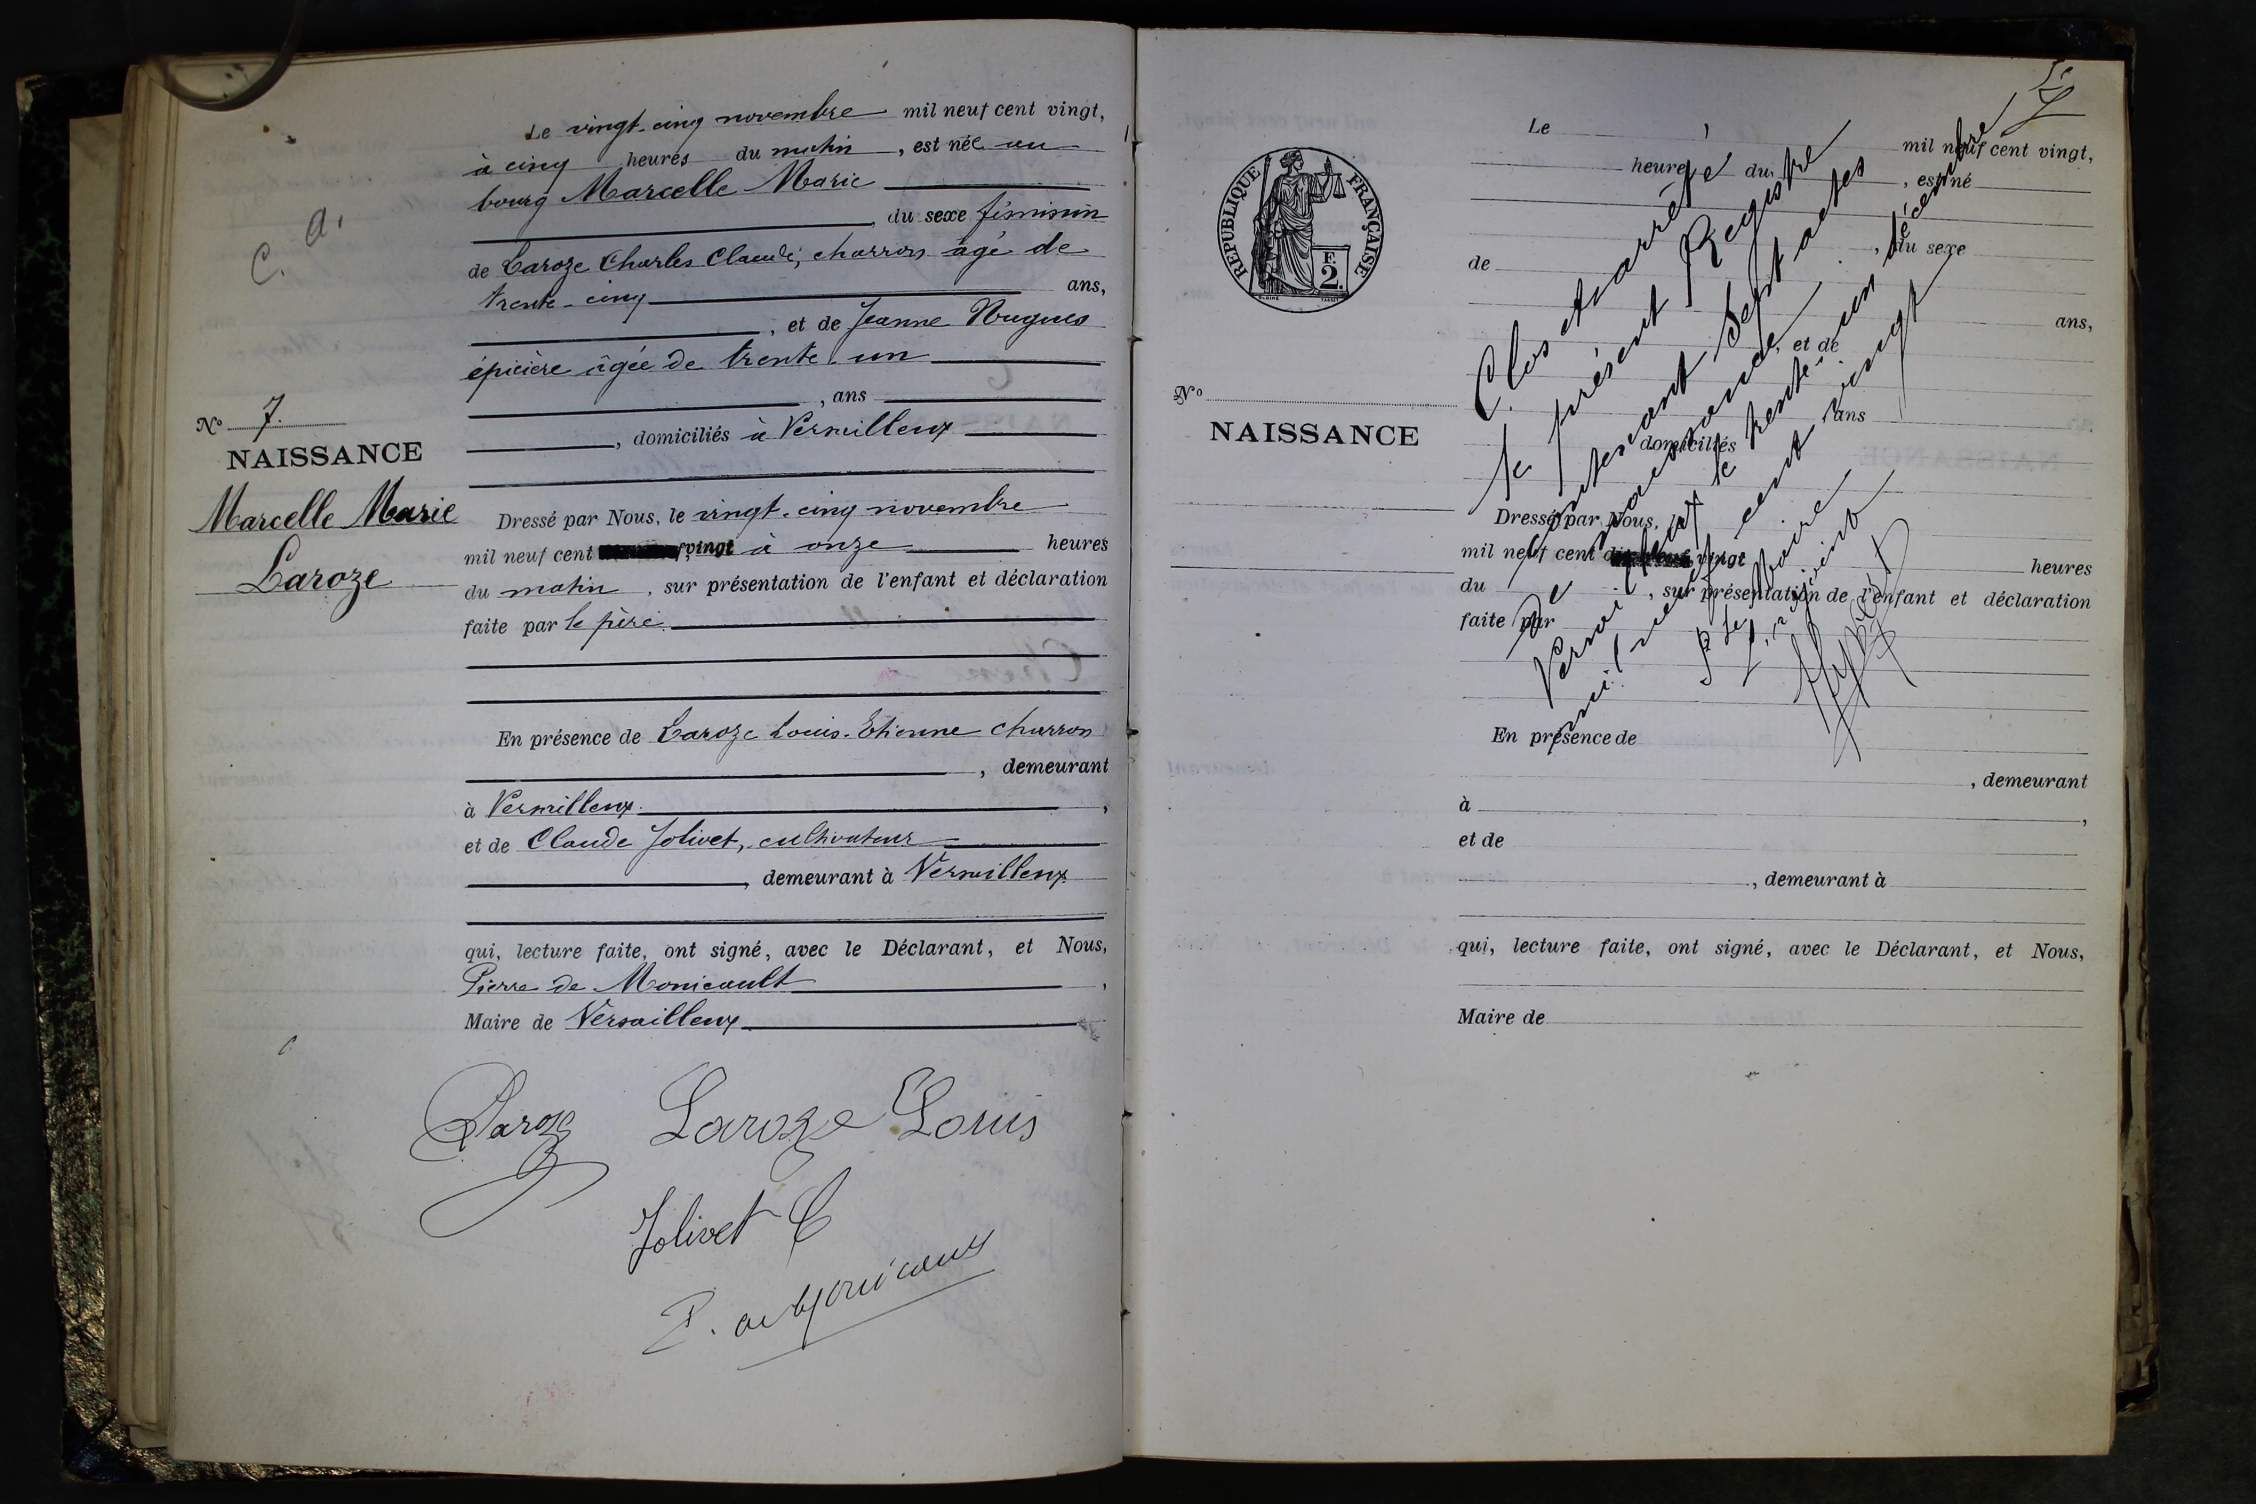 C. a.
N° 7.
NAISSANCE
Marcelle Marie
Laroze
Le vingt-cinq novembre mil neuf cent vingt,
à cinq heures du matin, est née au
bourg Marcelle Marie
, du sexe féminin
de Laroze Charles Claude, charron âgé de
trente-cinq ans,
, et de Jeanne Nugues
épicière âgée de trente-un
, ans
, domiciliés à Versailleux
Dressé par Nous, le vingt-cinq novembre
mil neuf cent vingt à onze heures
du matin, sur présentation de l'enfant et déclaration
faite par le père.
En présence de Laroze Louis-Etienne charron
, demeurant
à Versailleux,
et de Claude Jolivet, cultivateur
, demeurant à Versailleux
qui, lecture faite, ont signé, avec le Déclarant, et Nous,
Pierre de Monicault,
Maire de Versailleux
Laroze Laroze Louis
Jolivet C
P. de Monicault
RÉPUBLIQUE FRANÇAISE
F.
2.
N°
NAISSANCE
Le mil neuf cent vingt,
heure du, est né
, du sexe
de
ans,
, et de
ans
domiciliés
Dressé par Nous, le
mil neuf cent vingt heures
du, sur présentation de l'enfant et déclaration
faite par
En présence de
, demeurant
à,
et de
, demeurant à
qui, lecture faite, ont signé, avec le Déclarant, et Nous,
Maire de
Clos et arrêté
le présent Registre
contenant sept actes
de naissance
Versailleux le trente-un décembre
mil neuf cent vingt
P le Maire
L'adjoint